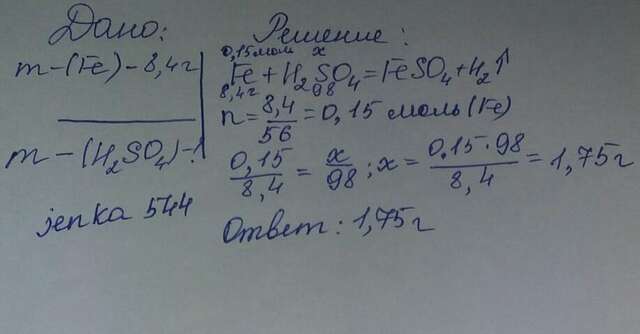 Дано:
m-(Fe)-8,4г
m-(H₂SO₄)-?
jenka 544
Решение:
0,15моль x
Fe+H₂SO₄=FeSO₄+H₂↑
8,4г 98
n=8,4/56=0,15 моль(Fe)
0,15/8,4=x/98; x=0,15·98/8,4=1,75г
Ответ: 1,75г